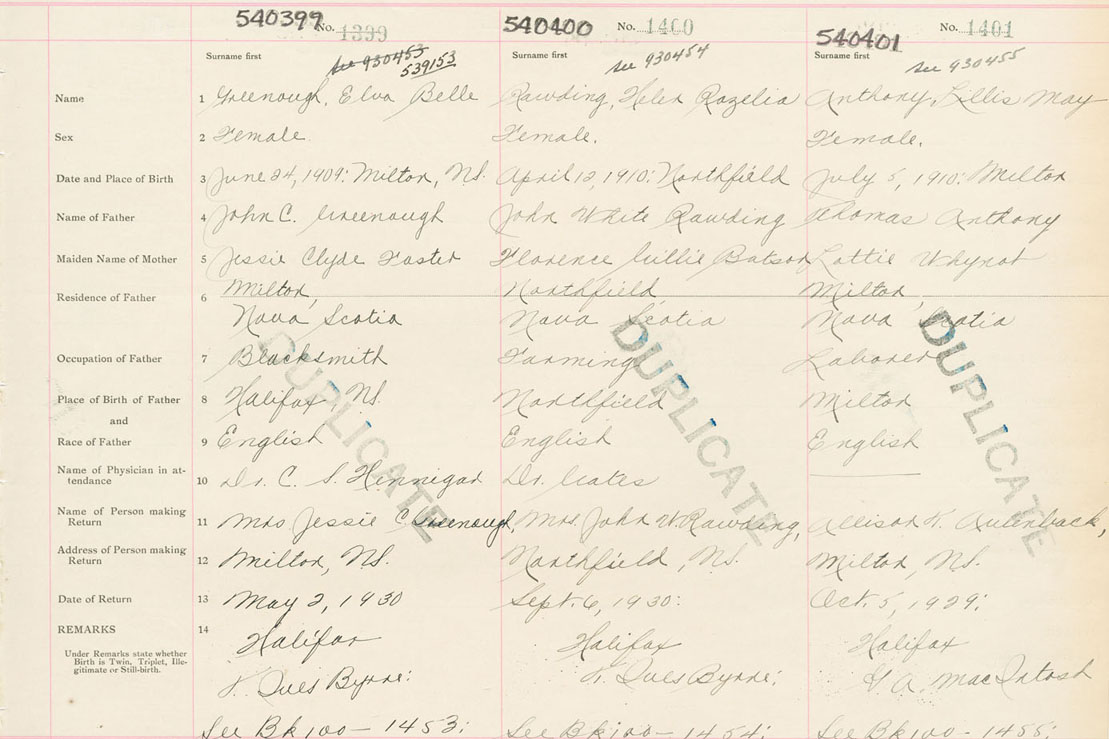 540399 No. 1399 540400 No. 1400 540401 No. 1401
Surname first see 930453 539153 Surname first see 930454 Surname first see 930455
Name 1 Greenough, Elva Belle Rawding, Helen Rozelia Anthony, Lillis May
Sex 2 Female. Female. Female.
Date and Place of Birth 3 June 24, 1909: Milton, N.S. April 12, 1910: Northfield July 5, 1910: Milton
Name of Father 4 John C. Greenough John White Rawding Thomas Anthony
Maiden Name of Mother 5 Jessie Clyde Foster Florence Lillie Batson Lottie Whynot
Residence of Father 6 Milton, Northfield, Milton,
Nova Scotia Nova Scotia Nova Scotia
Occupation of Father 7 Blacksmith Farming Laborer
Place of Birth of Father 8 Halifax, N.S. Northfield Milton
and
Race of Father 9 English English English
Name of Physician in at-
tendance 10 Dr. C. S. Hennigar Dr. Cates
Name of Person making
Return 11 Mrs Jessie C Greenough, Mrs. John W. Rawding, Allison K. Aulenback,
Address of Person making
Return 12 Milton, N.S. Northfield, N.S. Milton, N.S.
Date of Return 13 May 2, 1930 Sept. 6, 1930: Oct. 5, 1929:
REMARKS 14 Halifax Halifax Halifax
Under Remarks state whether
Birth is Twin, Triplet, Ille-
gitimate or Still-birth.
Ives Byrne: Ives Byrne: A. MacIntosh
See Bk 100 - 1453: See Bk 100 - 1454: See Bk 100 - 1455:
DUPLICATE DUPLICATE DUPLICATE